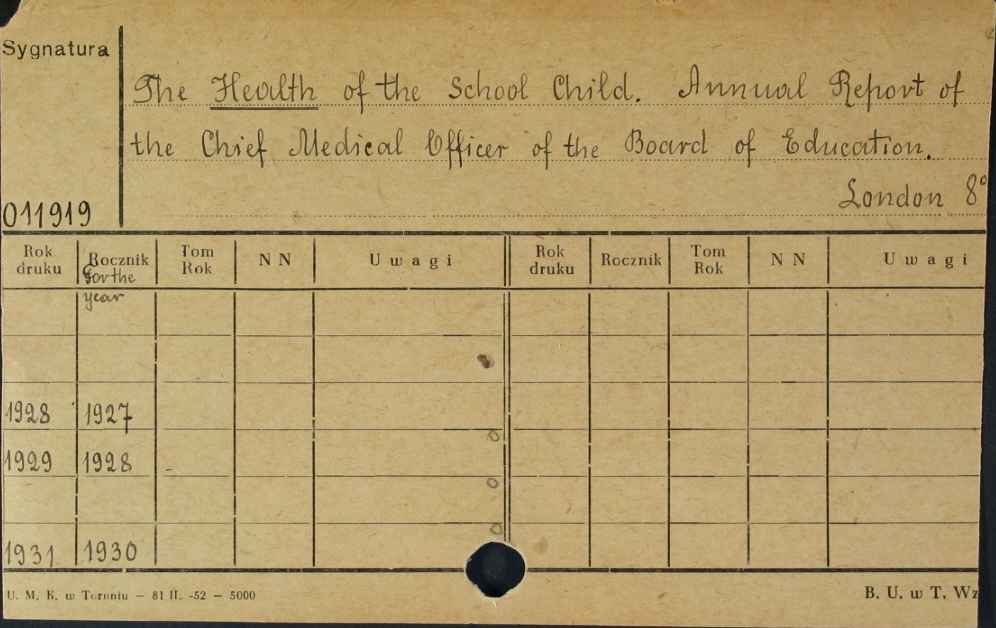 Sygnatura
The Health of the School Child. Annual Report of
the Chief Medical Officer of the Board of Education.
London 8°
011919
Rok druku Rocznik Tom Rok N N Uwagi Rok druku Rocznik Tom Rok N N Uwagi
For the
year
1928 1927
1929 1928
1931 1930
U. M. K. w Toruniu — 81 II. -52 — 5000
B. U. w T. Wz